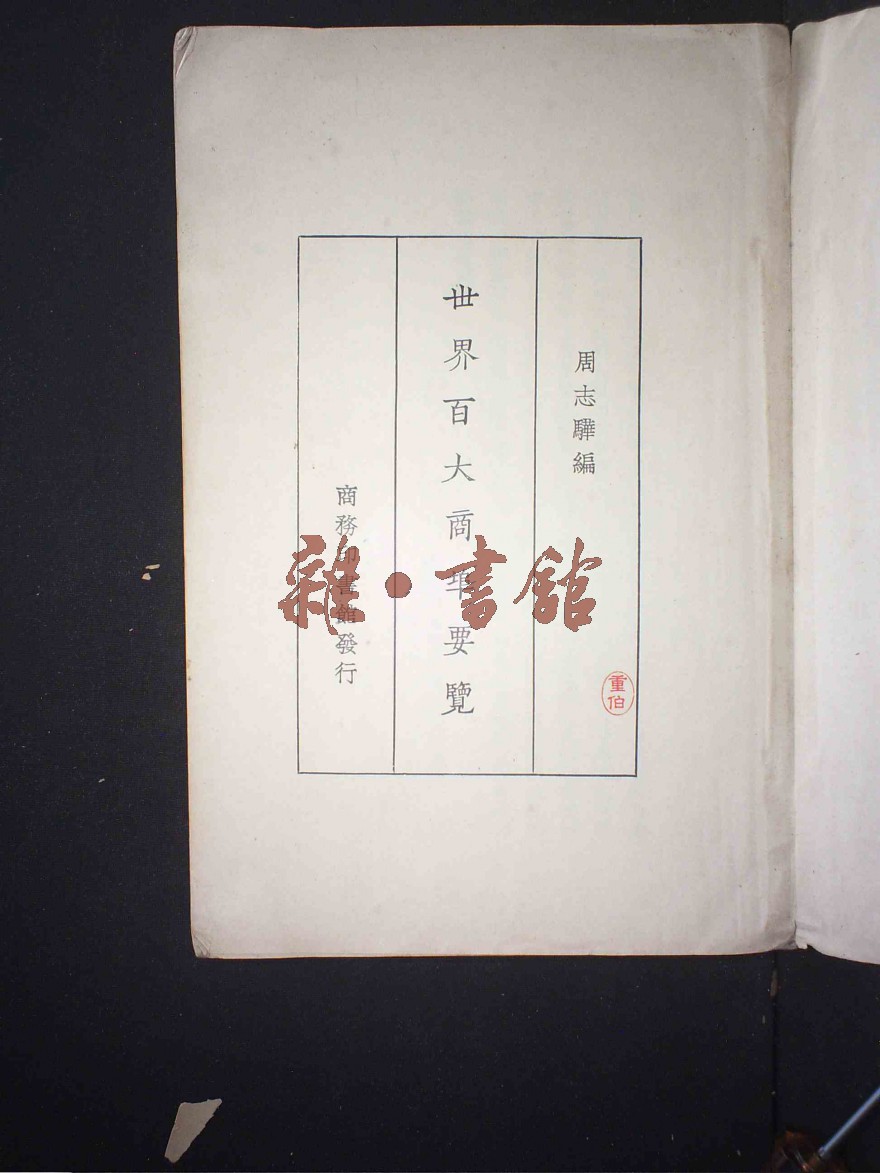 周志驊編
世界百大商埠要覽
商務印書館發行
雜•書館
重伯